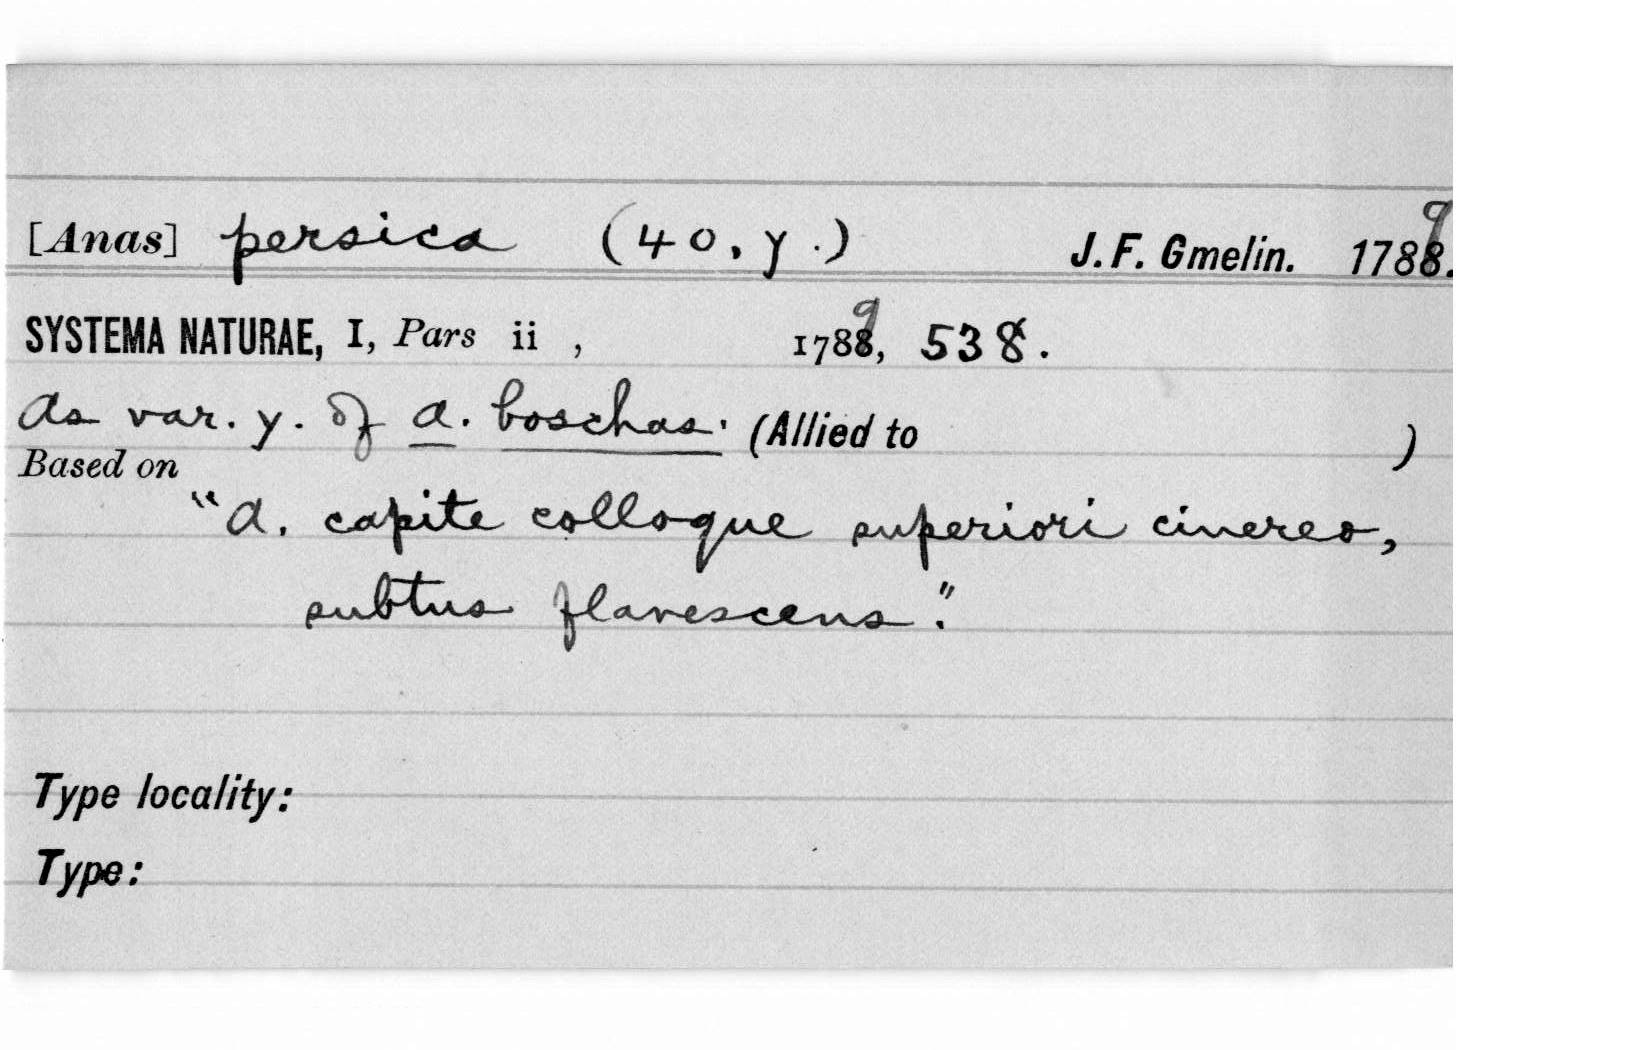 [Anas] persica (40, γ.) J. F. Gmelin. 1789.
SYSTEMA NATURAE, I, Pars ii , 1789, 538.
As var. γ. of A. boschas. (Allied to )
Based on
"A. capite colloque superiori cinereo,
subtus flavescens."
Type locality:
Type: